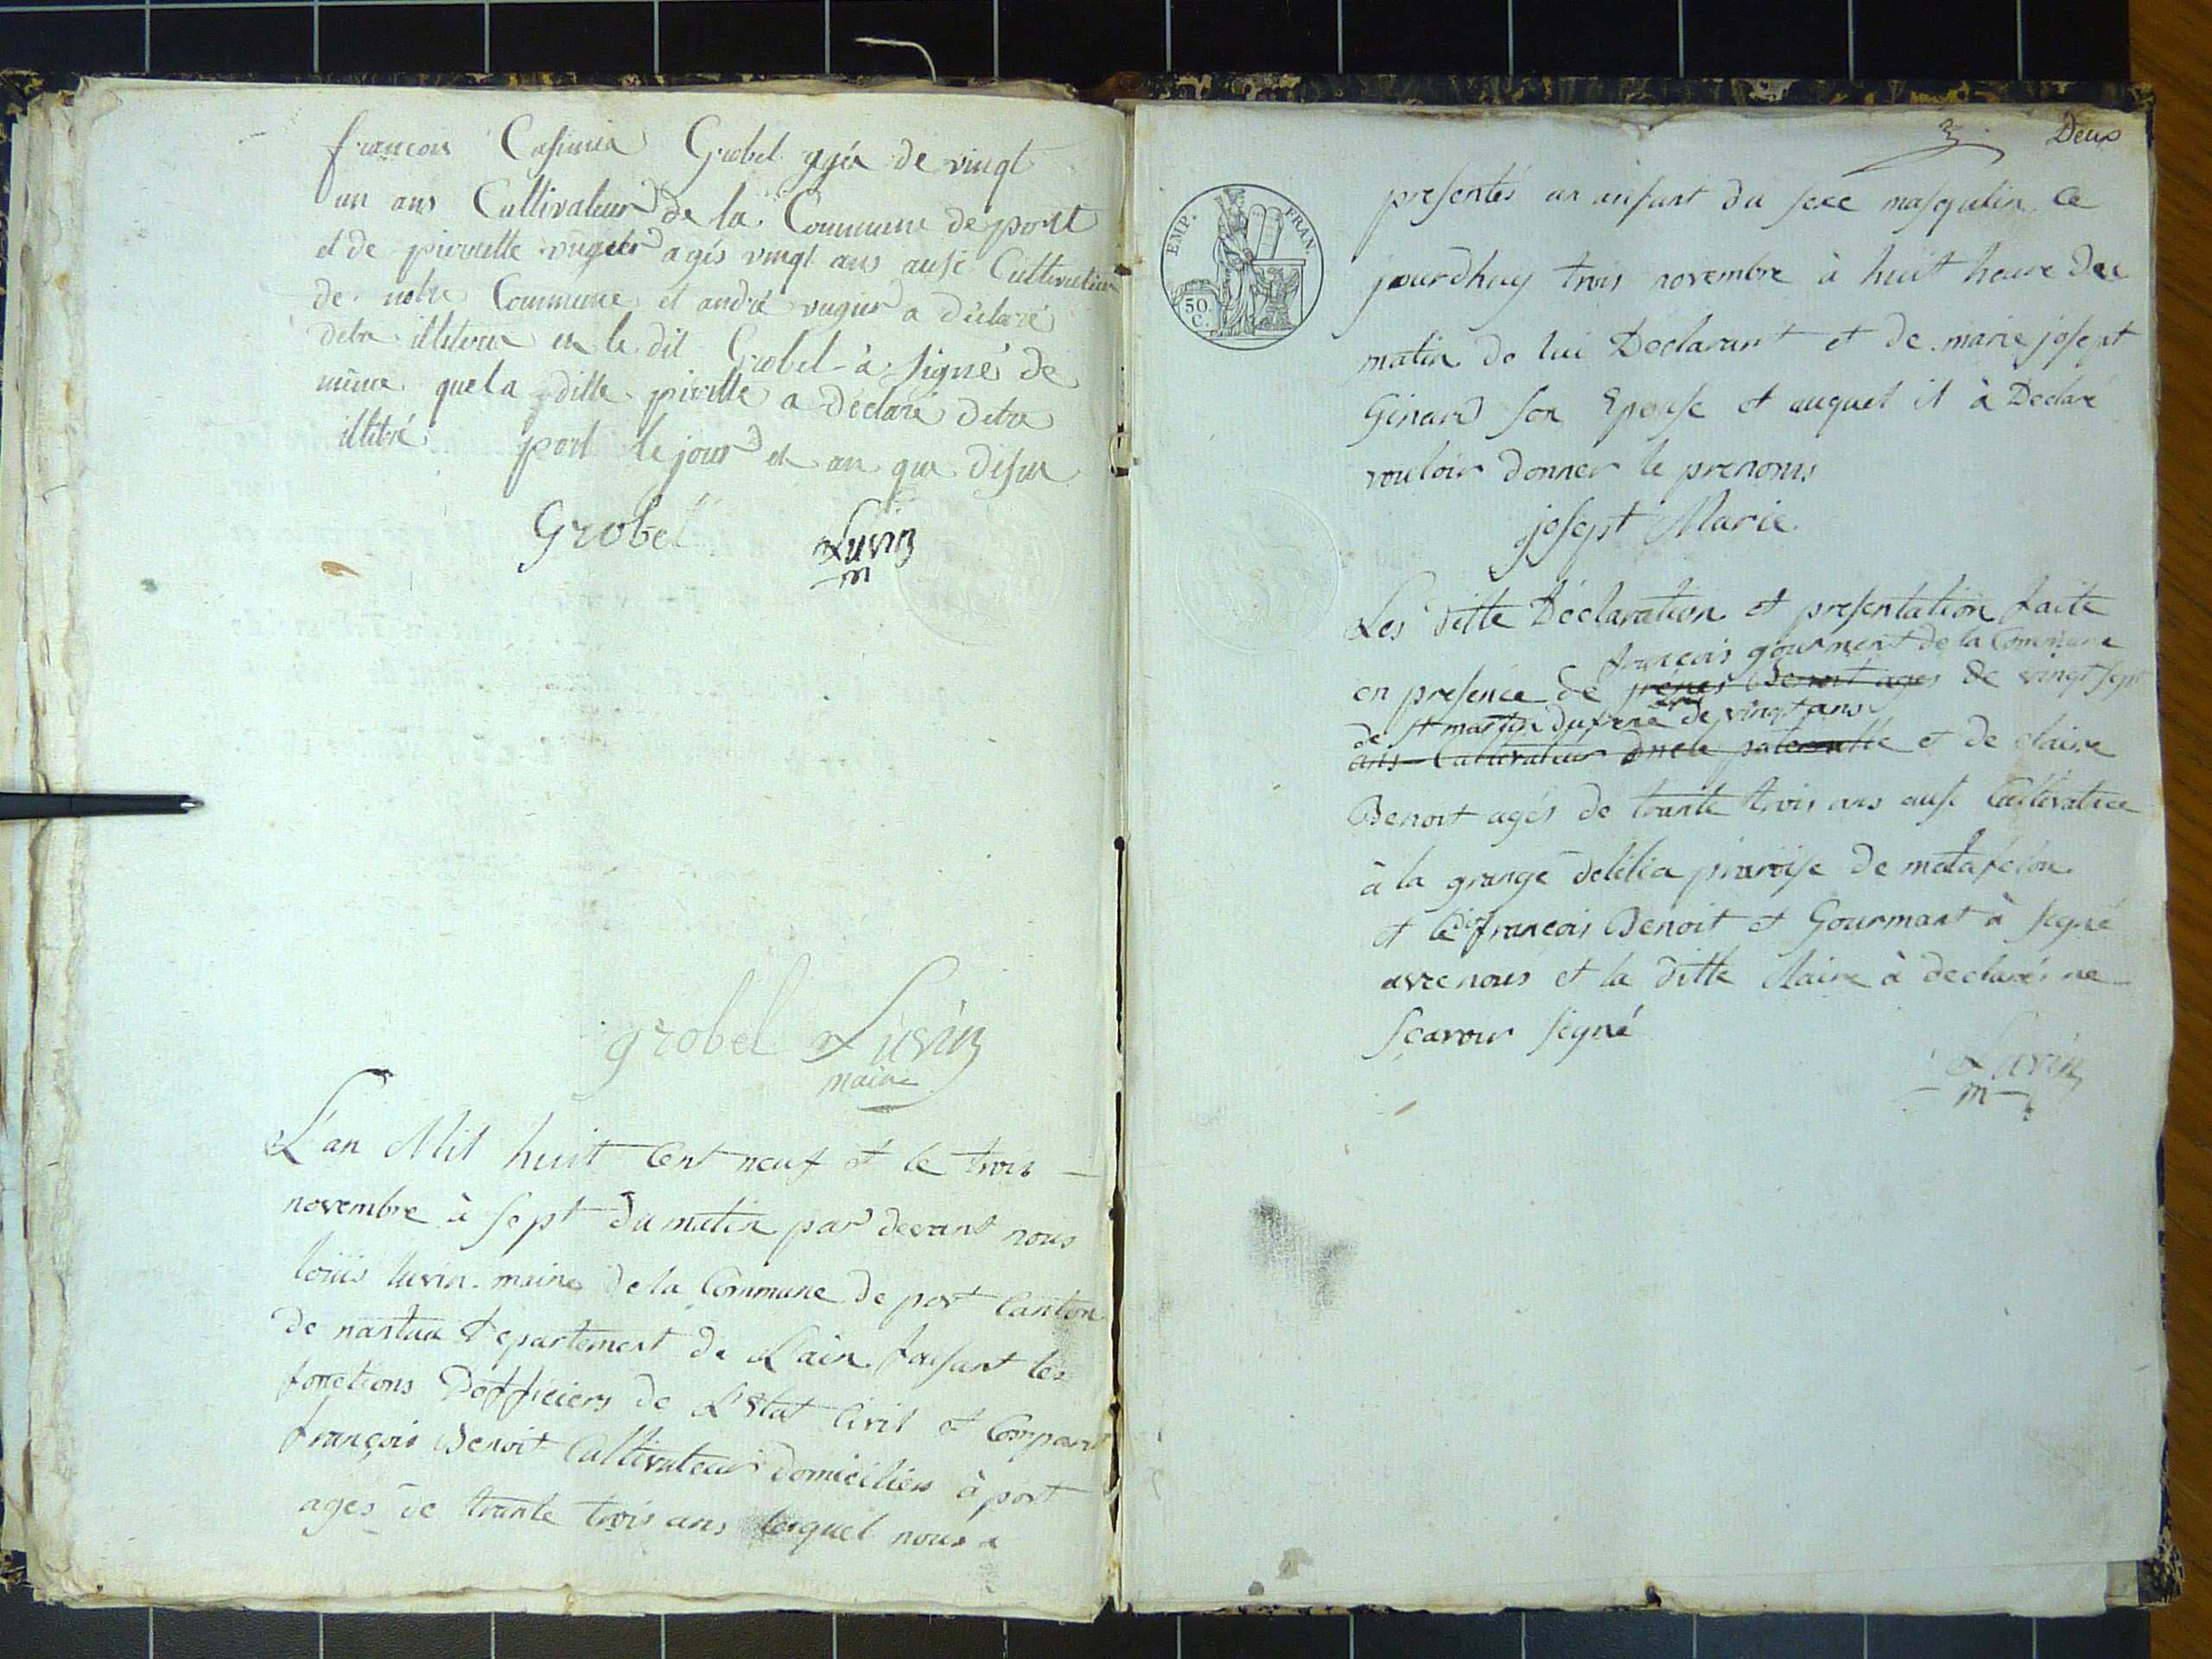 françois Casimir Grobel agéz de vingt
un ans Cultivateur de la Commune de port
et de pierrette vugier agés vingt ans ausi Cultivateur
de notre Commune et andré vugier a déclaré
detre illitere en le dit Grobel à signé de
même que la ditte pirette a déclaré detre
illitré port le jour et an que desur
Grobel Luvin
m
grobel Luvin
maire
L'an Mil huit Cent neuf et le trois
novembre à sept du matin par devant nous
loüis luvin maire de la Commune de port Canton
de nantua Departement de Lain faisant les
fonctions Dofficiers de L'Etat Civil et Comparu
françois Benoit Cultivateur domiciliés à port
ages de trante trois ans lequel nous a
3 Deux
EMP. FRAN.
50
C.
presentés un anfant du sexe masqulin ce
jourdhuy trois novembre à huit heure du
matin de lui Déclarant et de marie josept
Ginard son Epouse et auquel il à Déclaré
vouloir donner le prenoms
josept Marie
Les ditte Déclaration et presentation faite
françois gourmant de la Commune
en presence de Benoit ages de vingt sept
de st martin dufrene de vingt ans
ans Cultivateur oncle paternelle et de claire
Benoit agés de trante trois ans ausi Cultivatrice
à la grange delilia paroise de matafelon
et le dt françois Benoit et Gourmant à signé
avec nous et la ditte claire à declarés ne
sçavoir signé
Luvin
m